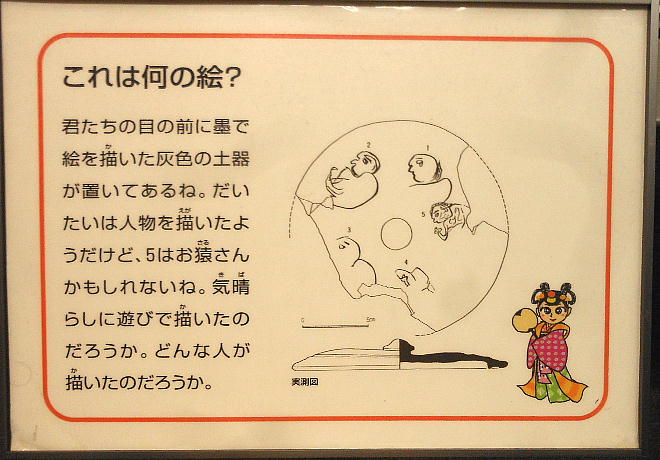 これは何の絵?
君たちの目の前に墨で
絵を描いた灰色の土器
が置いてあるね。だい
たいは人物を描いたよ
うだけど、5はお猿さん
かもしれないね。気晴
らしに遊びで描いたの
だろうか。どんな人が
描いたのだろうか。
2
1
5
3
4
0 5cm
実測図